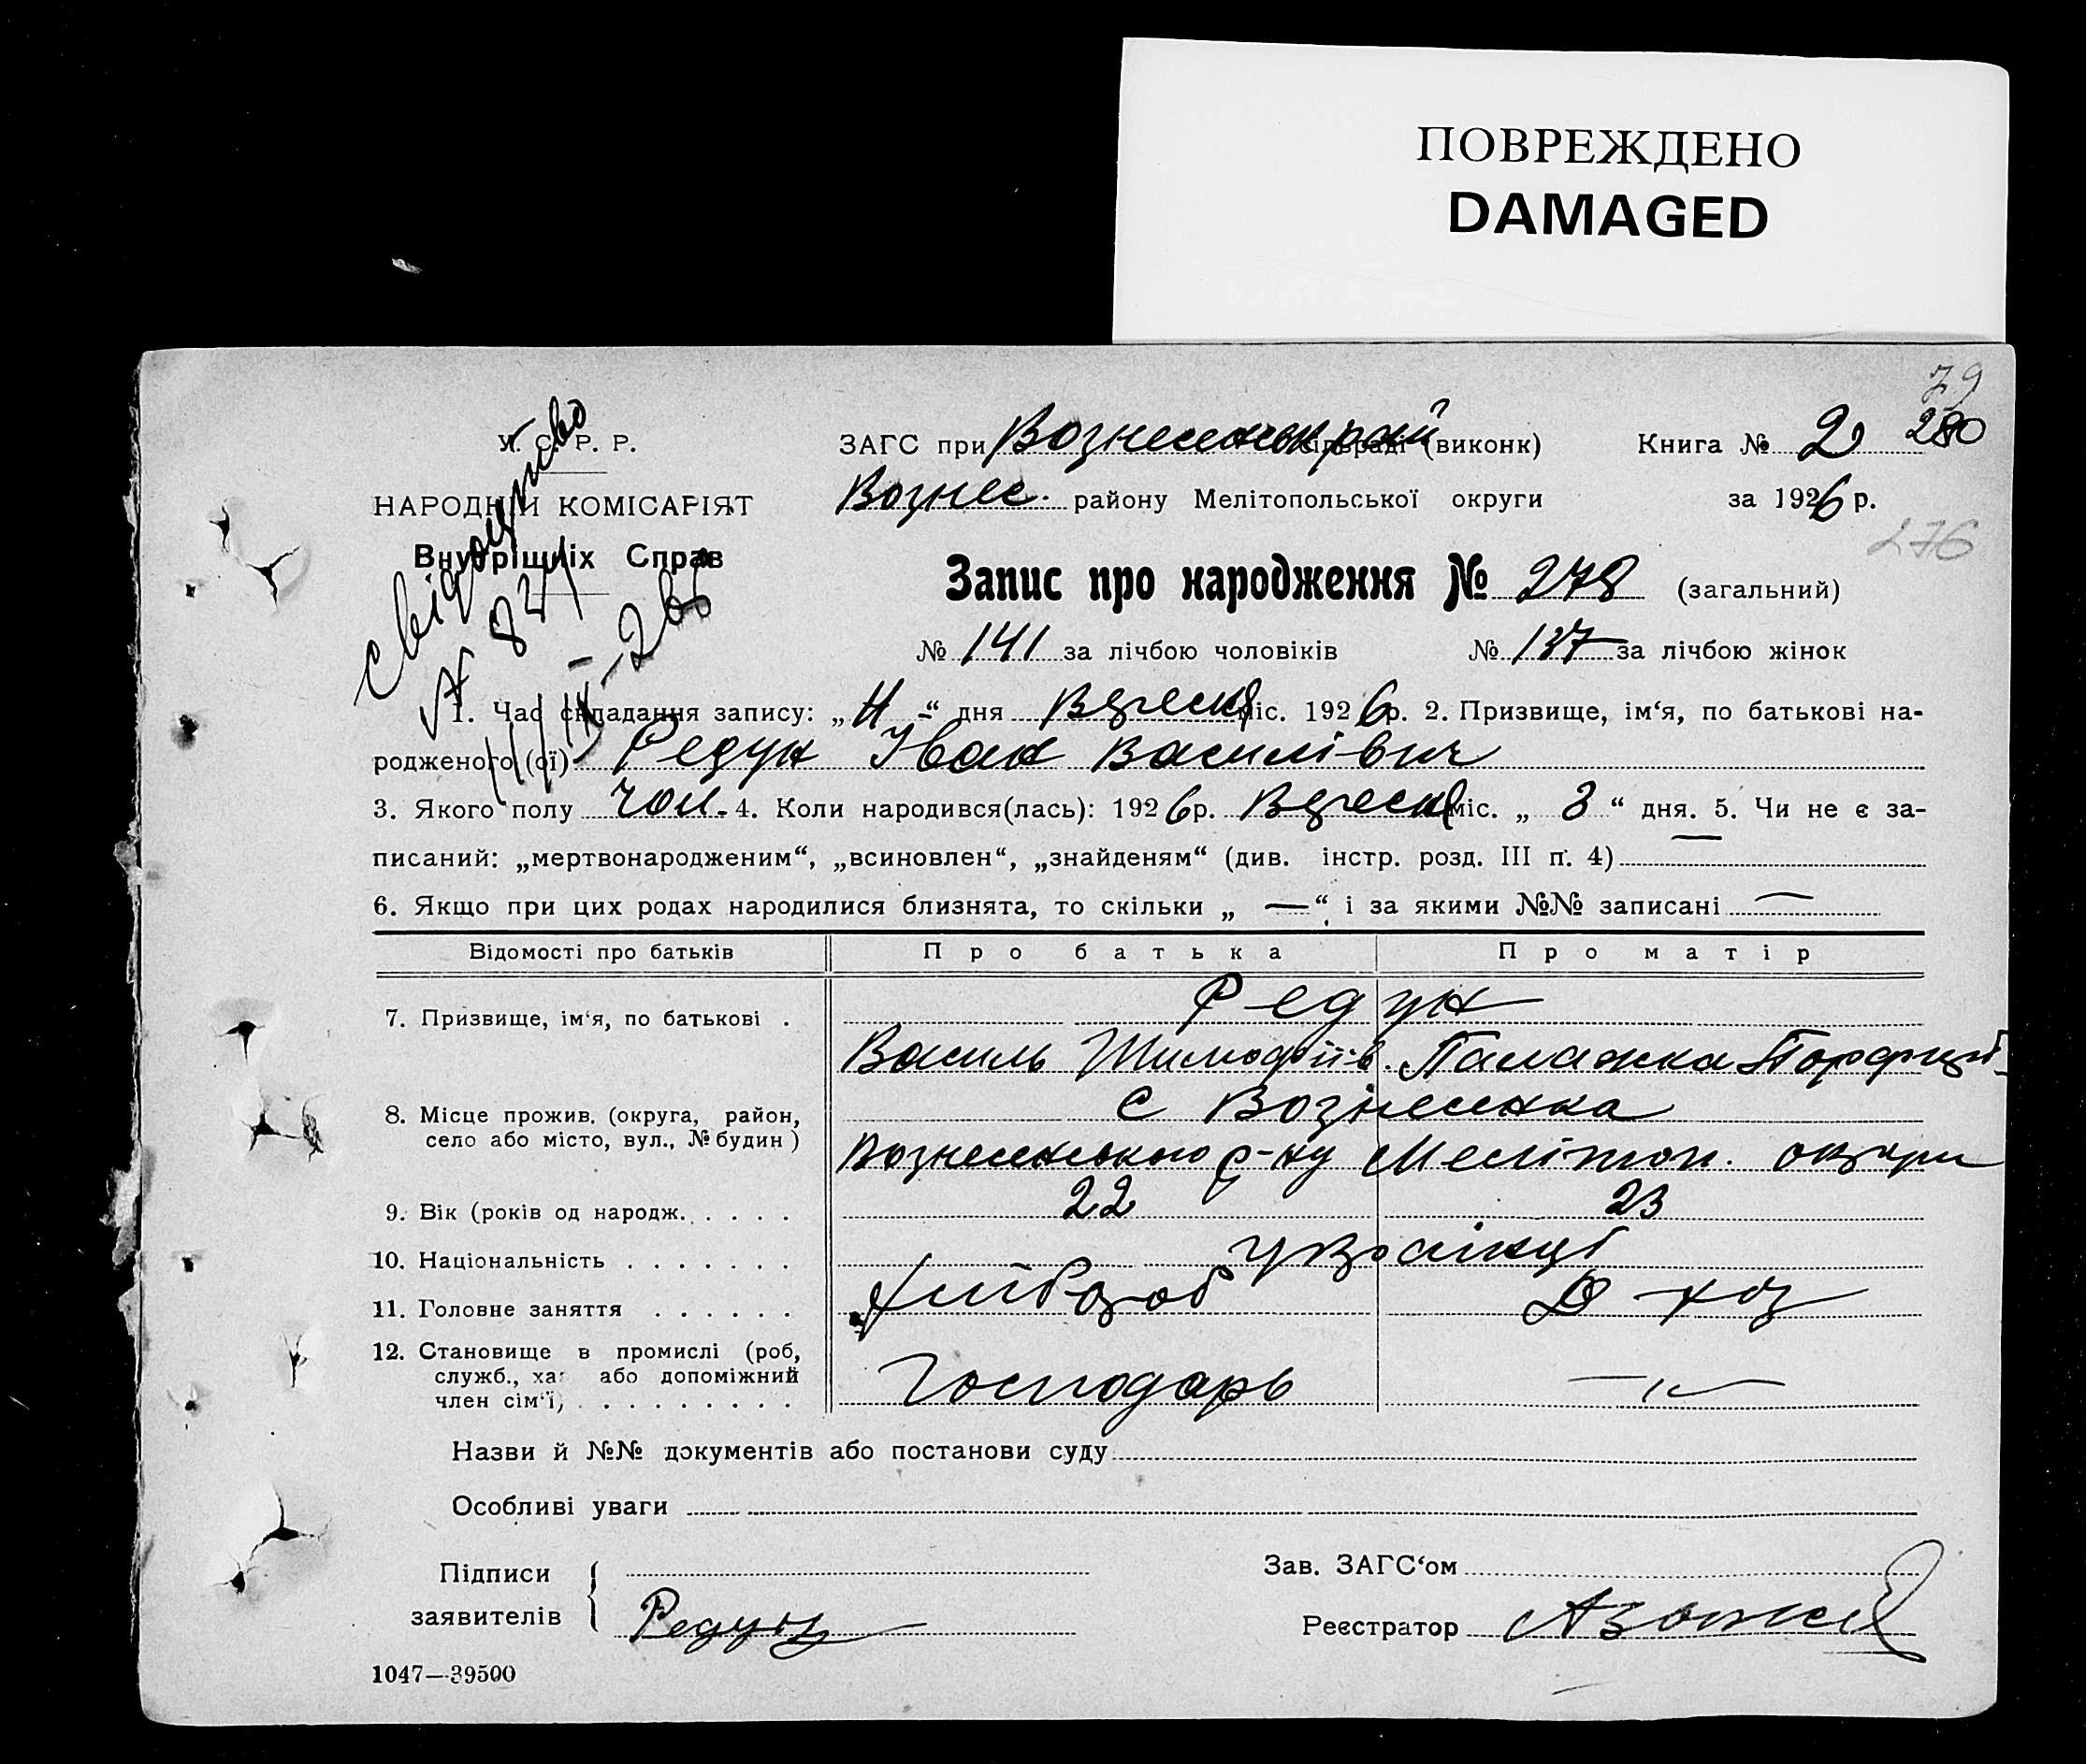 ПОВРЕЖДЕНО
DAMAGED
79
280
У. С. Р. Р.
НАРОДНІЙ КОМІСАРІЯТ
Внутрішніх Справ
свідоцтво
№ 821
11/IX-26
ЗАГС при Вознесенськ рай сільраді (виконк)
Вознес. району Мелітопольської округи
Книга № 2
за 1926 р.
276
Запис про народження № 278 (загальний)
№ 141 за лічбою чоловіків № 137 за лічбою жінок
1. Час складання запису: „11“ дня Вересня міс. 1926 р. 2. Призвище, ім‘я, по батькові на-
родженого (ої) Редун Іван Василівич
3. Якого полу чол. 4. Коли народився(лась): 1926 р. Вересня міс. „ 3 “ дня. 5. Чи не є за-
писаний: „мертвонародженим“, „всиновлен“, „знайденям“ (див. інстр. розд. III п. 4) —
6. Якщо при цих родах народилися близнята, то скільки „ — “, і за якими №№ записані —
Відомості про батьків Про батька Про матір
7. Призвище, ім‘я, по батькові . Редун
Василь Тимофіїв. Палажка Порфирі-
8. Місце прожив. (округа, район,
село або місто, вул., № будин) с Вознесенка
Вознесенського р-ну Меліτοπ. округи
9. Вік (років од народж. . . . . 22 23
10. Національність . . . . . . . українці
11. Головне заняття . . . . . . Хлібороб Д-хоз
12. Становище в промислі (роб,
служб., ха або допоміжний
член сім‘ї) . . . . . . . . . Господарь —"—
Назви й №№ документів або постанови суду
Особливі уваги
Підписи
заявителів Редун
Зав. ЗАГС‘ом
Реєстратор
1047—39500